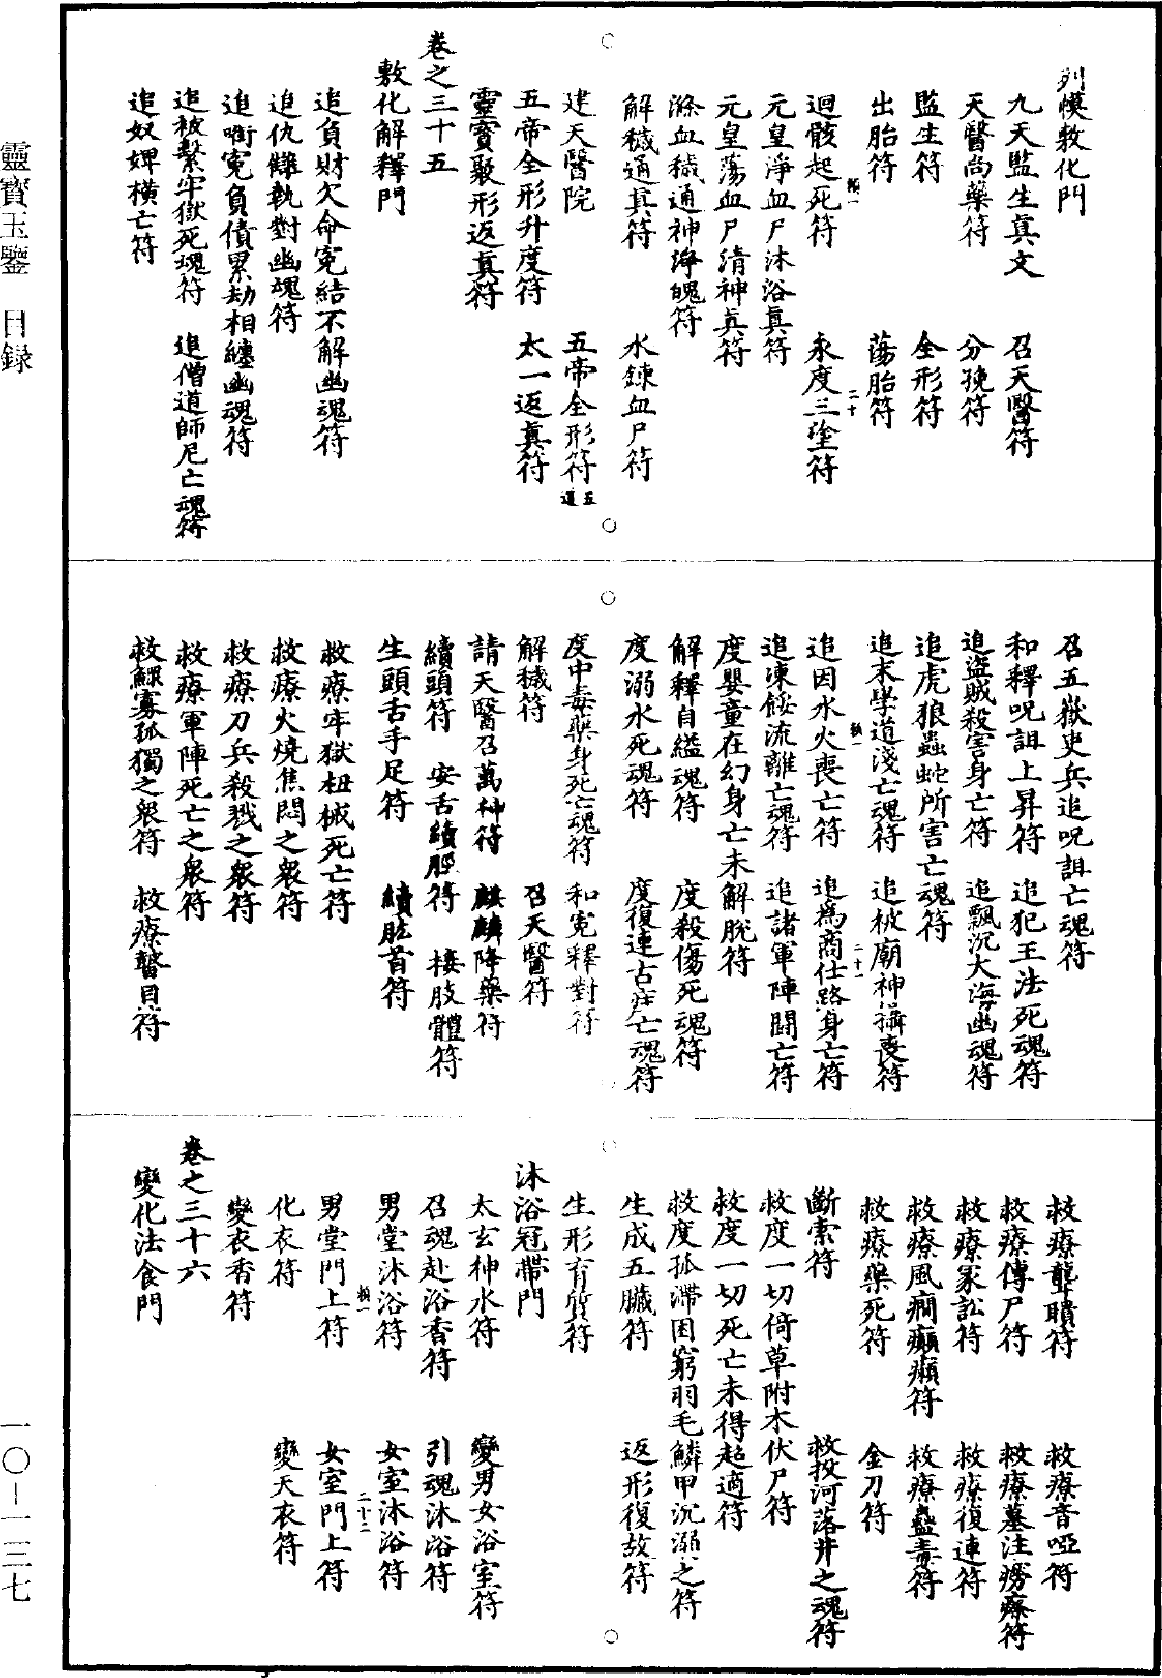 靈寶玉鑒 目録
一〇—一三七
列幙敷化門
九天監生真文 召天醫符
天醫尚藥符 分㝃符
監生符 全形符
出胎符 蕩胎符
迴骸起死符 永度三塗符
元皇淨血尸沐浴真符
元皇蕩血尸清神真符
滌血穢通神淨魄符
解穢通真符 水鍊血尸符
建天醫院 五帝全形符五道
五帝全形升度符 太一返真符
靈寶聚形返真符
卷之三十五
敷化解釋門
追負財欠命冤結不解幽魂符
追仇讎執對幽魂符
追啣冤負債累劫相纏幽魂符
追被繫牢獄死魂符 追僧道師尼亡魂符
追奴婢橫亡符
召五嶽史兵追呪詛亡魂符
和釋呪詛上昇符 追犯王法死魂符
追盜賊殺害身亡符 追飄沉大海幽魂符
追虎狼蟲蛇所害亡魂符
追末學道淺亡魂符 追被廟神攝喪符
追因水火喪亡符 追爲商仕路身亡符
追凍餒流離亡魂符 追諸軍陣鬪亡符
度嬰童在幻身亡未解脫符
解釋自縊魂符 度殺傷死魂符
度溺水死魂符 度復連古疰亡魂符
度中毒藥身死亡魂符 和冤釋對符
解穢符 召天醫符
請天醫召萬神符 麒麟降藥符
續頭符 安舌續脛符 棲肢體符
生頭舌手足符 續肚首符
救療牢獄杻械死亡符
救療火燒焦悶之衆符
救療刀兵殺戮之衆符
救療軍陣死亡之衆符
救鰥寡孤獨之衆符 救療瞽目符
救療聾聵符 救療音啞符
救療傳尸符 救療墓注癆瘵符
救療冢訟符 救療復連符
救療風癎癲癩符 救療蠱毒符
救療藥死符 金刀符
斷索符 救投河落井之魂符
救度一切倚草附木伏尸符
救度一切死亡未得超適符
救度孤滯困窮羽毛鱗甲沉溺之符
生成五臟符 返形復故符
生形有質符
沐浴冠帶門
太玄神水符 變男女浴室符
召魂赴浴香符 引魂沐浴符
男堂沐浴符 女室沐浴符
男堂門上符 女室門上符
化衣符 變天衣符
變衣香符
卷之三十六
變化法食門